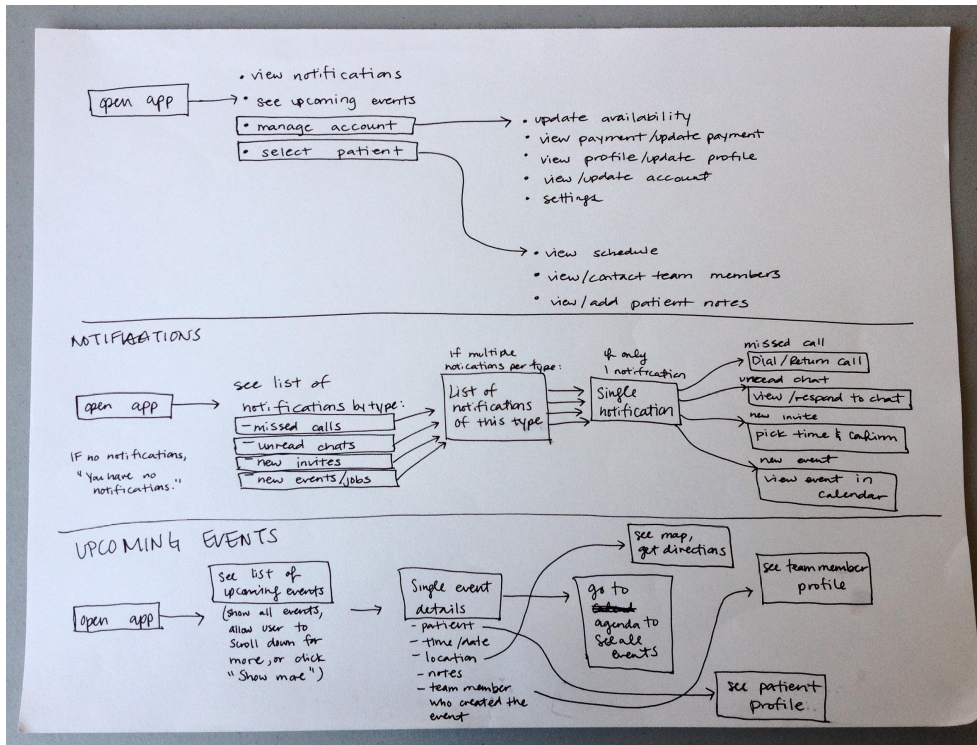 open app
• view notifications
• see upcoming events
• manage account
• select patient
• update availability
• view payment/update payment
• view profile/update profile
• view/update account
• settings
• view schedule
• view/contact team members
• view/add patient notes
NOTIFICATIONS
open app
IF no notifications,
"You have no
notifications."
see list of
notifications by type:
- missed calls
- unread chats
- new invites
- new events/jobs
If multiple
notications per type:
List of
notifications
of this type
if only
1 notification
Single
notification
missed call
Dial/Return call
unread chat
view/respond to chat
new invite
pick time & confirm
new event
view event in
calendar
UPCOMING EVENTS
open app
see list of
upcoming events
(show all events,
allow user to
scroll down for
more, or click
"Show more")
Single event
details
- patient
- time/date
- location
- notes
- team member
who created the
event
see map,
get directions
go to
agenda to
see all
events
see team member
profile
see patient
profile